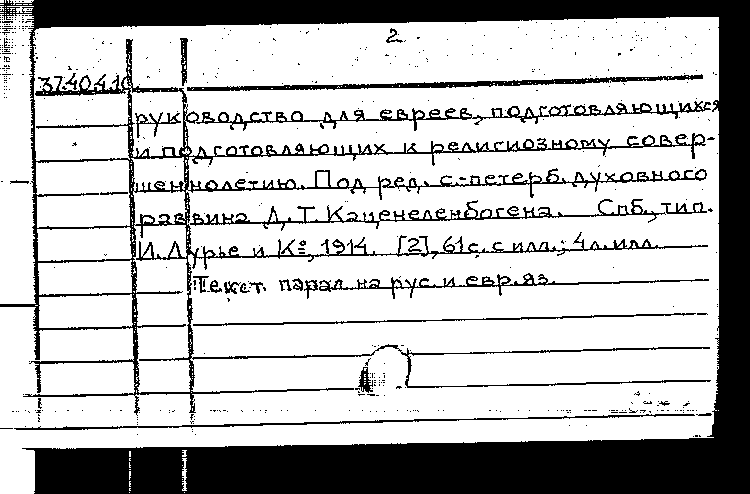 2
37.40.4.10
руководство для евреев, подготовляющихся
и подготовляющих к религиозному совер-
шеннолетию. Под ред. с.-петерб. духовного
раввина Д. Т. Каценеленбогена. Спб., тип.
И. Лурье и Кº, 1914. [2], 61 с. с илл.; 4 л. илл.
Текст парал. на рус. и евр. яз.